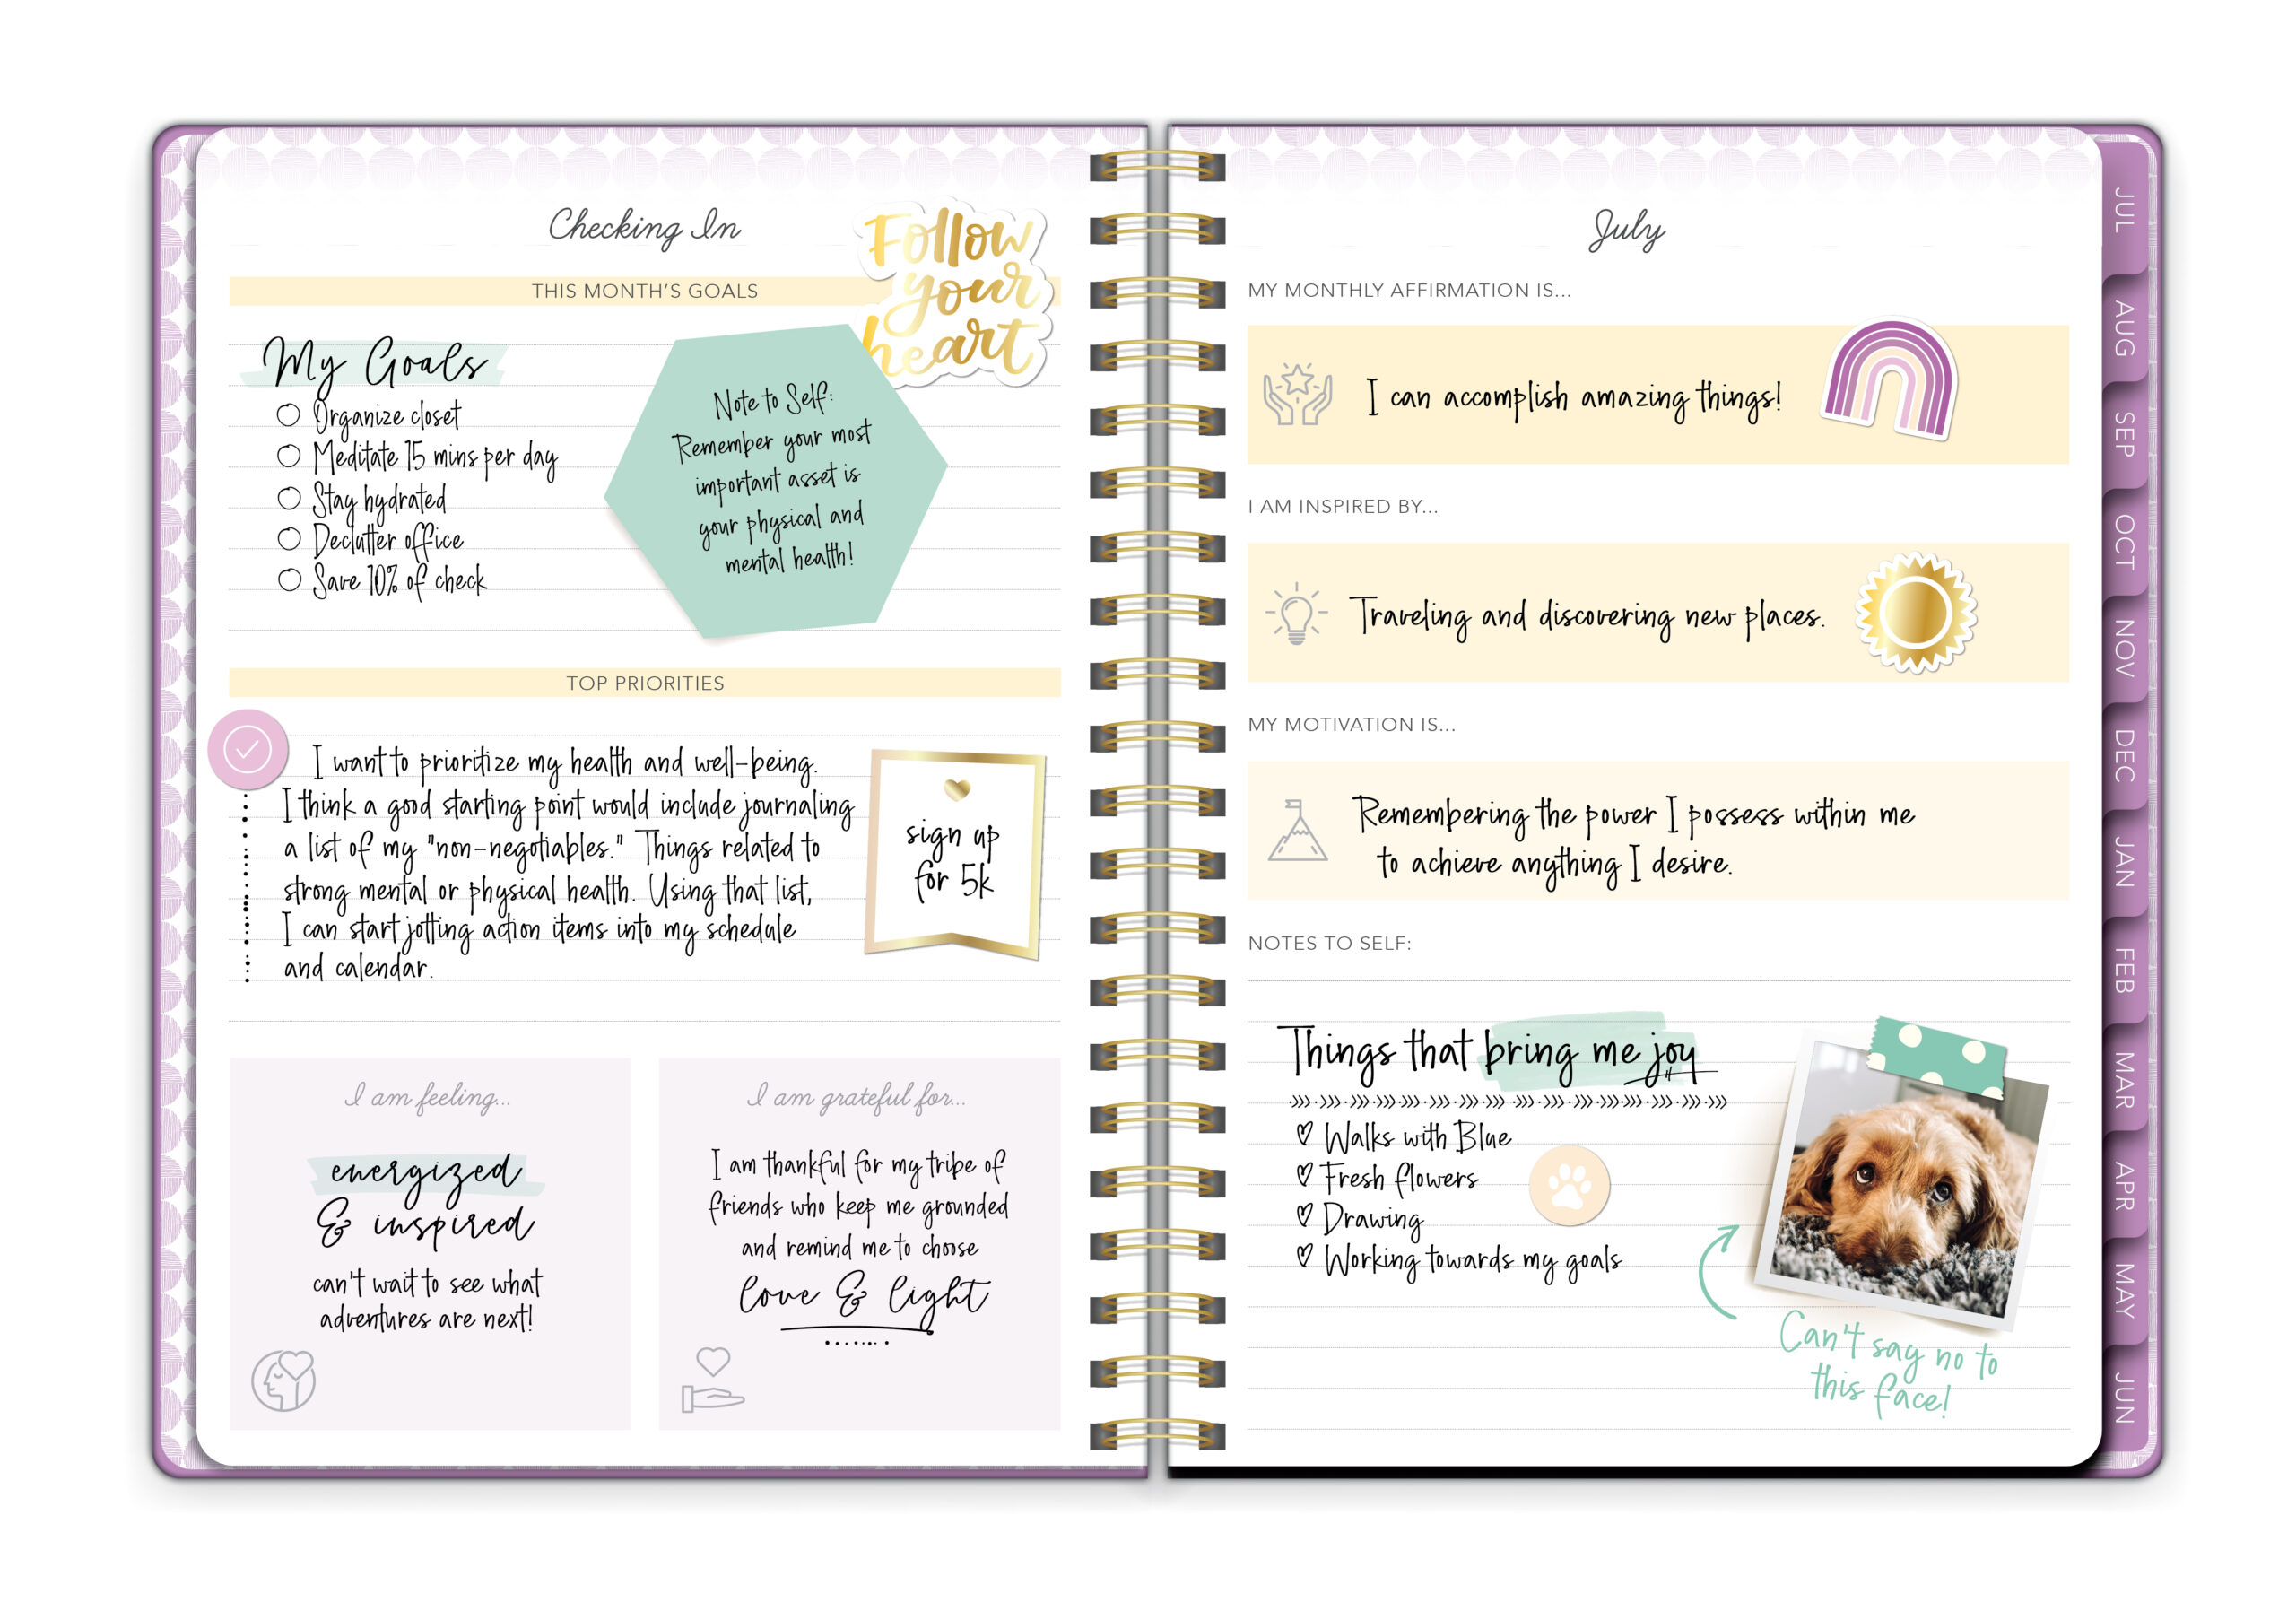 Checking In
THIS MONTH'S GOALS
Follow
your
heart
My Goals
Organize closet
Meditate 15 mins per day
Stay hydrated
Declutter office
Save 10% of check
Note to Self:
Remember your most
important asset is
your physical and
mental health!
TOP PRIORITIES
I want to prioritize my health and well-being.
I think a good starting point would include journaling
a list of my "non-negotiables." Things related to
strong mental or physical health. Using that list,
I can start jotting action items into my schedule
and calendar.
sign up
for 5k
I am feeling...
energized
& inspired
can't wait to see what
adventures are next!
I am grateful for...
I am thankful for my tribe of
friends who keep me grounded
and remind me to choose
love & light
July
MY MONTHLY AFFIRMATION IS...
I can accomplish amazing things!
I AM INSPIRED BY...
Traveling and discovering new places.
MY MOTIVATION IS...
Remembering the power I possess within me
to achieve anything I desire.
NOTES TO SELF:
Things that bring me joy
Walks with Blue
Fresh flowers
Drawing
Working towards my goals
Can't say no to
this face!
JUL
AUG
SEP
OCT
NOV
DEC
JAN
FEB
MAR
APR
MAY
JUN